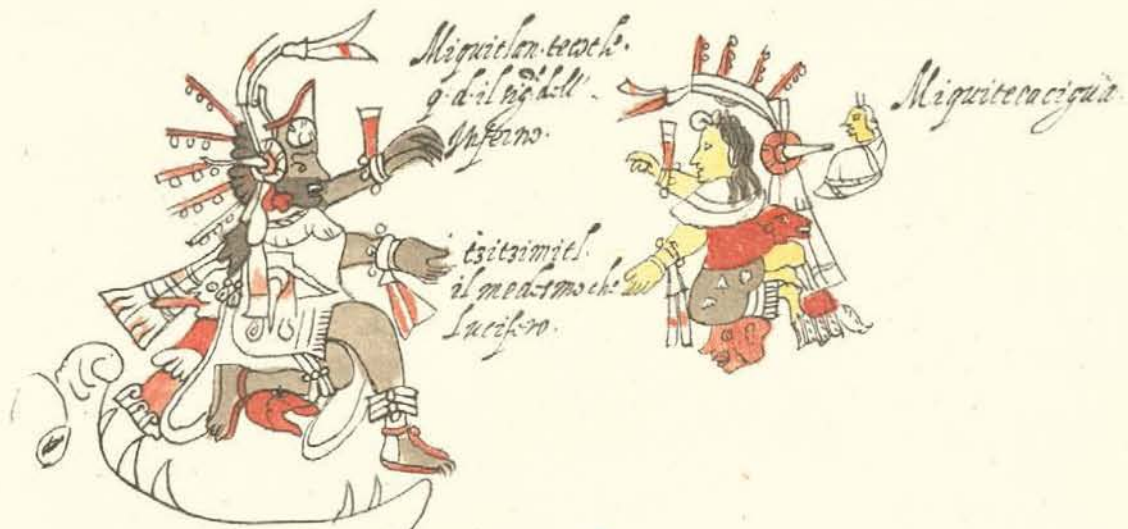 Miquitlan·tecotle·
q·d·il sig.<sup>re</sup> dell'
Inferno·
tzitzimitl·
il medesmo che
Lucifero·
Miquitecacigua·